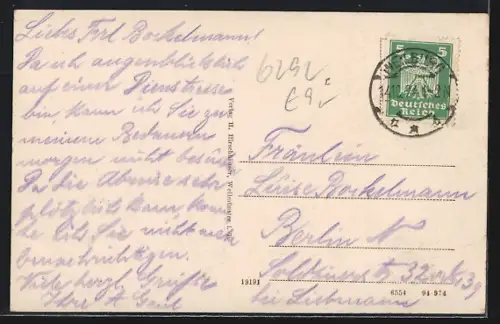 Liebes Frl Bockelmann!
Da ich augenblicklich
auf einer Dienstreise
bin, kann ich Sie zu
meinem Bedauern
morgen nicht besuchen
Da die Abreise sehr
plötzlich kam, konnte
ich Sie nicht mehr
benachrichtigen.
Viele herzl. Grüße
Ihre A
5
5
Deutsches
Reich
Verlag H. Hirschhäuser,
Fräulein
Luise Bockelmann
Berlin N
Soldinerstr. 32
bei Liebmann
19191
6554 94-974